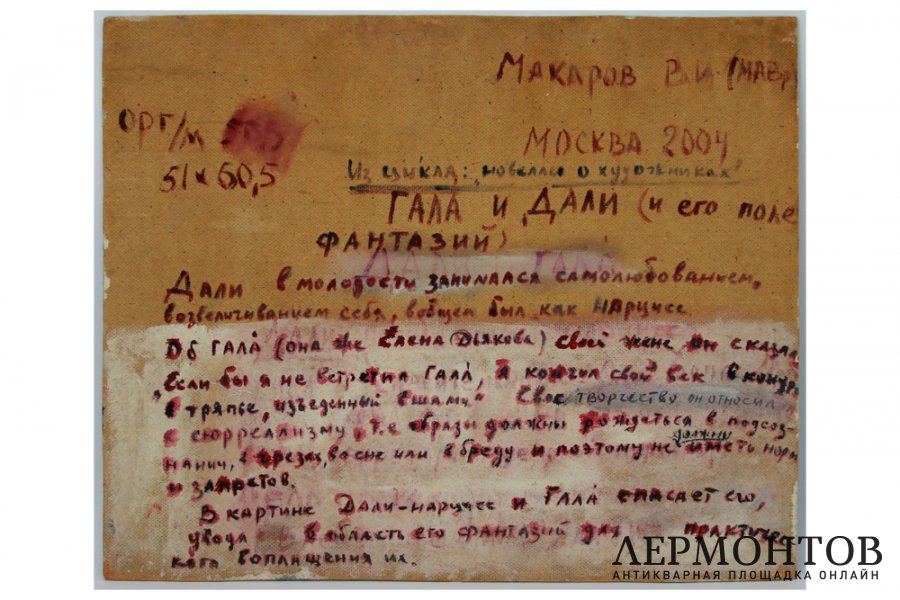 МАКАРОВ В.И (МАВР
ОРГ/М
МОСКВА 2004
51 x 60,5
Из цикла: „новеллы о художниках"
ГАЛА́ и ДАЛИ (и его поле
ФАНТАЗИЙ)
ДАЛИ в молодости занимался самолюбованием,
возвеличиванием себя, вобщем был как НАРЦИСС.
Об ГАЛА́ (она же Елена Дьякова) своей жене он сказал
„Если бы я не встретил ГАЛА́, я кончил свой век в конур
в тряпье, изъеденный вшами" Свое творчество он относил
к сюрреализму, т.е образы должны рождаться в подсоз-
нании, в грезах, во сне или в бреду и поэтому не должны иметь норм
и запретов.
В картине Дали-нарцисс и ГАЛА́ спасает его,
уводя в область его фантазий для практичес
кого воплощения их.
ЛЕРМОНТОВ
АНТИКВАРНАЯ ПЛОЩАДКА ОНЛАЙН